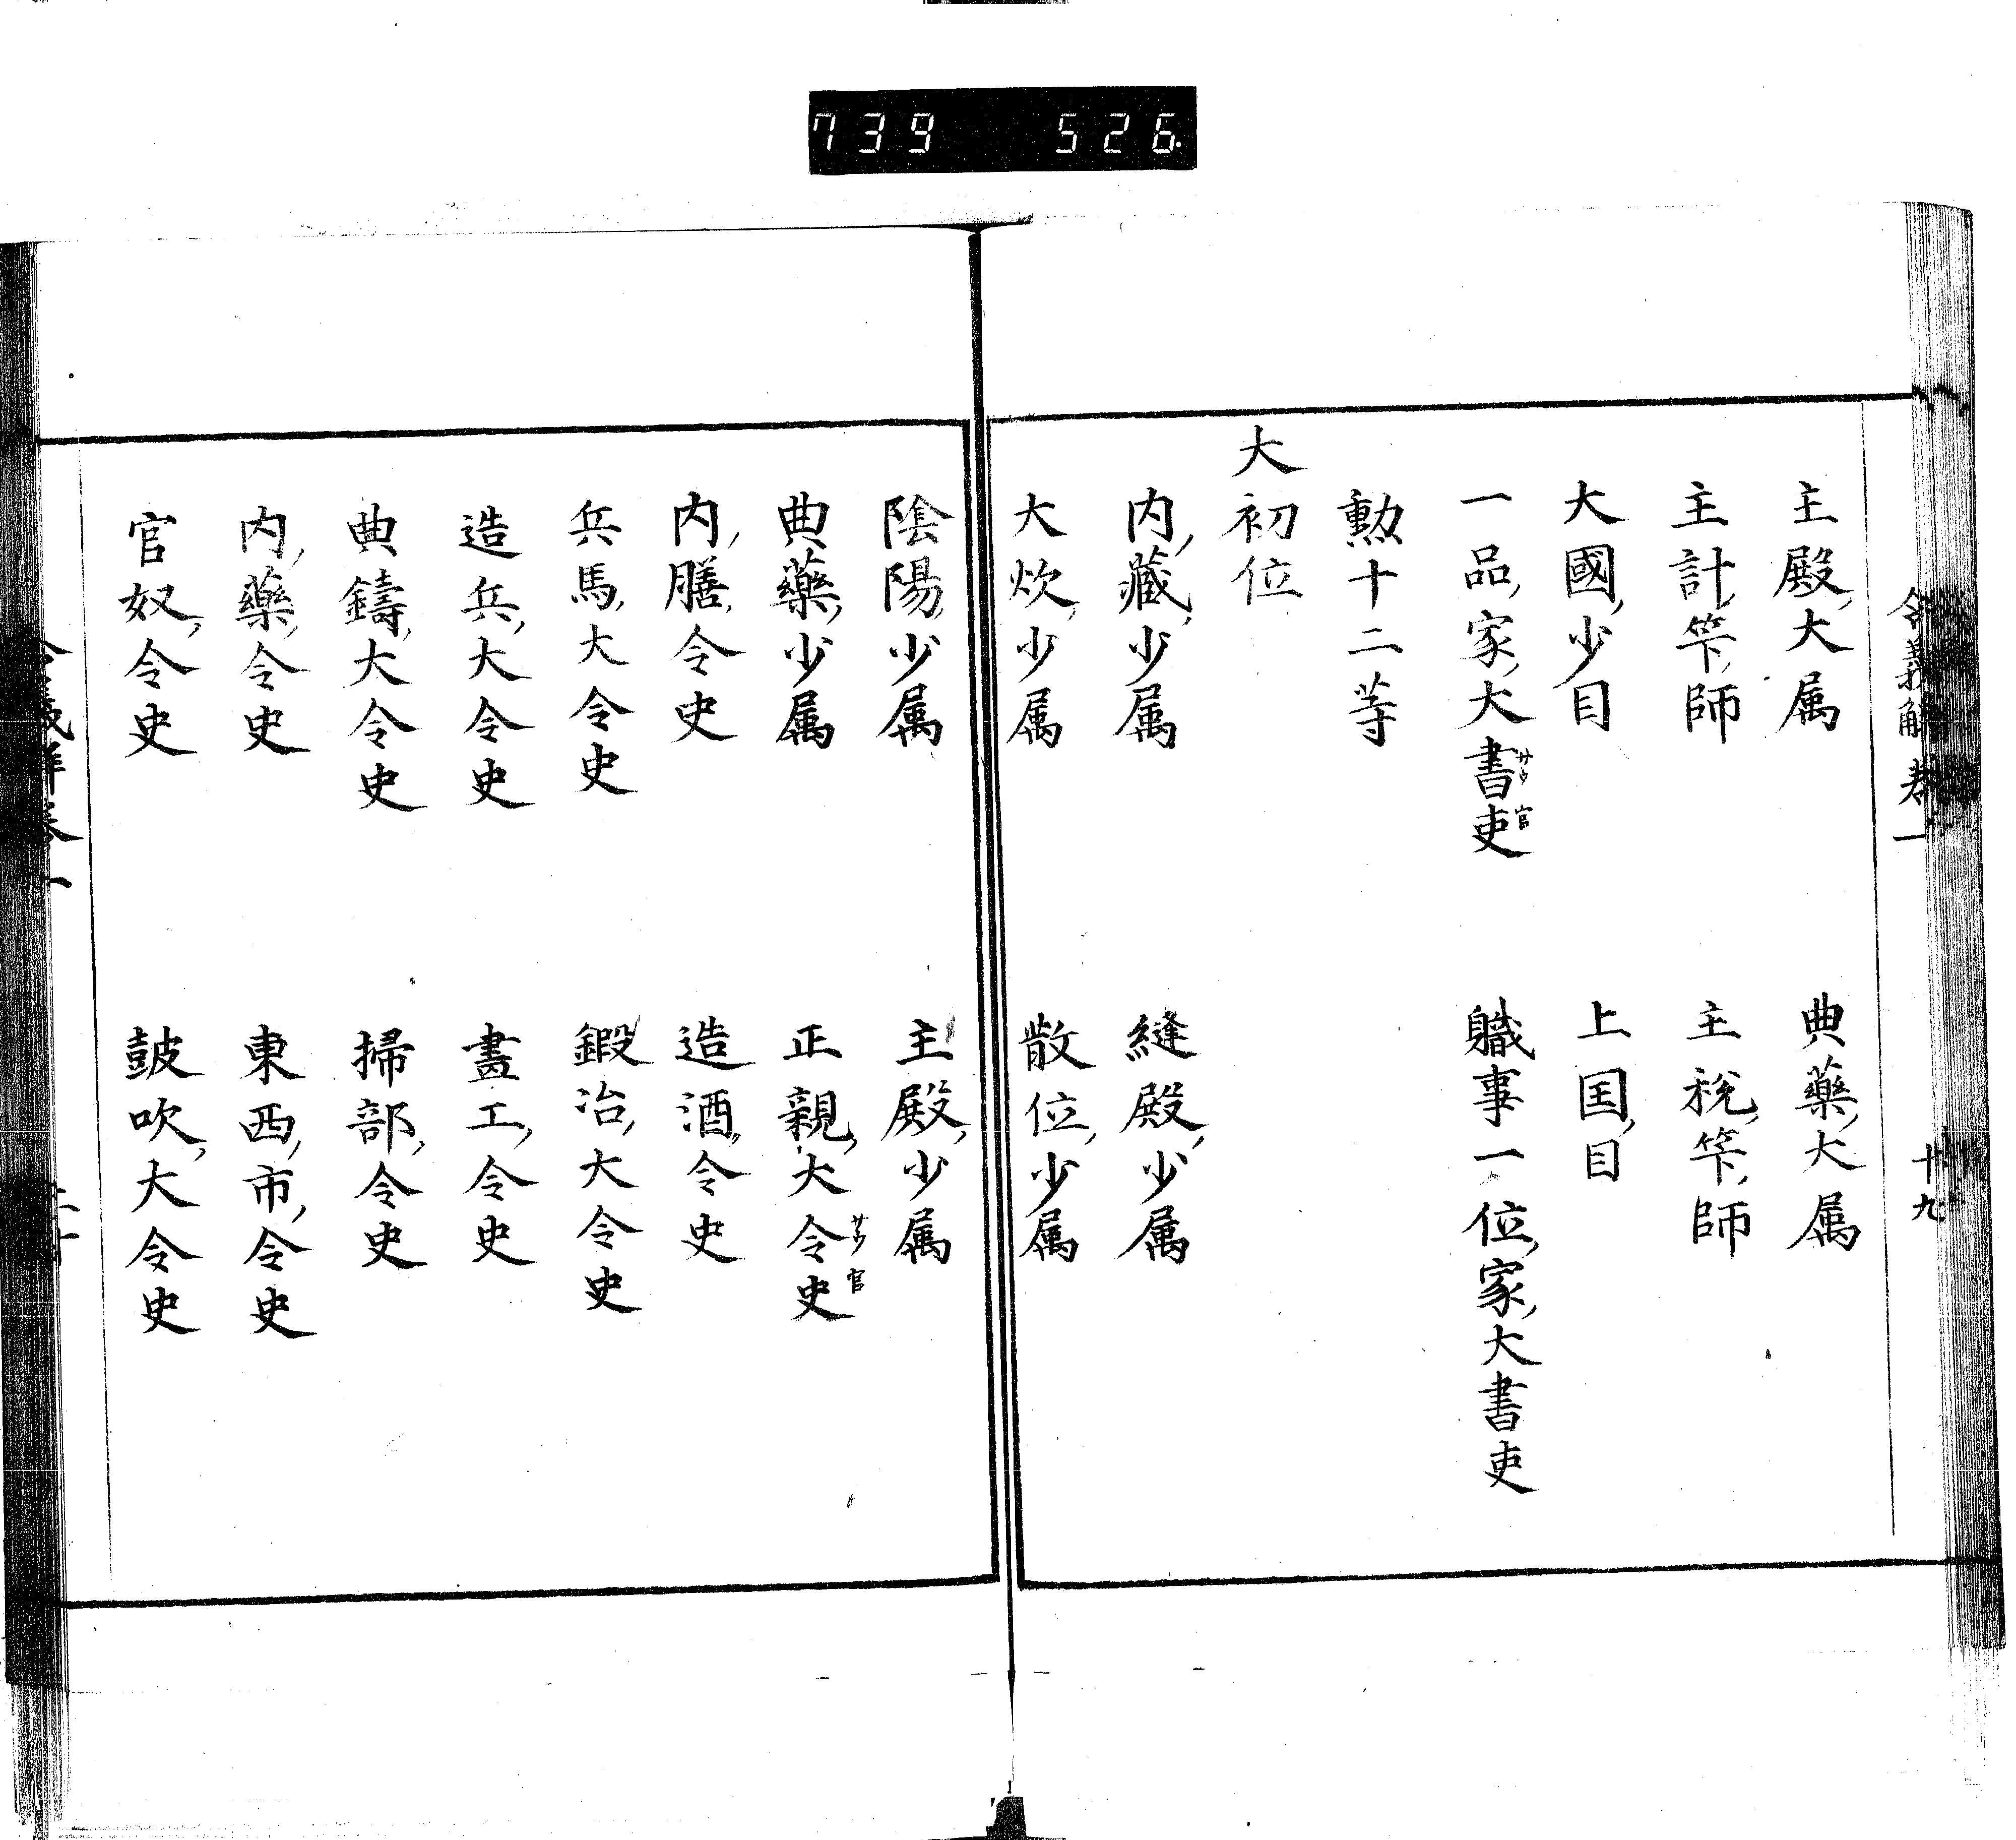 739 526.
令義解卷一 十九
主殿大属 典藥大属
主計笇師 主税笇師
大國少目 上国目
一品家大書吏 職事一位家大書吏
サウ官
勲十二等
大初位
内藏少属 縫殿少属
大炊少属 散位少属
陰陽少属 主殿少属
典藥少属 正親大令史
サウ官
内膳令史 造酒令史
兵馬大令史 鍜冶大令史
造兵大令史 畫工令史
典鑄大令史 掃部令史
内藥令史 東西市令史
官奴令史 鼓吹大令史